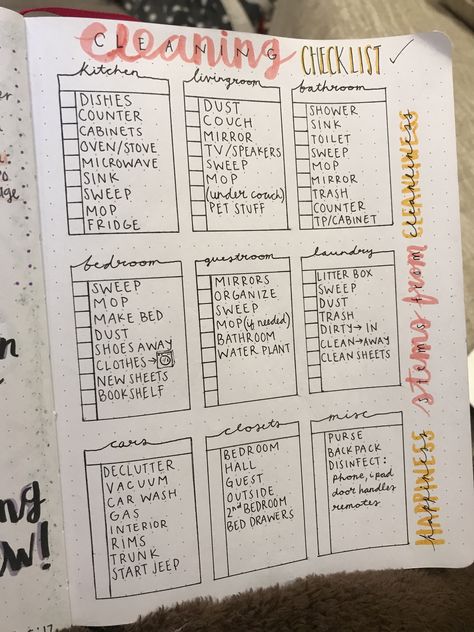 cleaning CLEANING CHECKLIST
kitchen
DISHES
COUNTER
CABINETS
OVEN/STOVE
MICROWAVE
SINK
SWEEP
MOP
FRIDGE
livingroom
DUST
COUCH
MIRROR
TV/SPEAKERS
SWEEP
MOP
(under couch)
PET STUFF
bathroom
SHOWER
SINK
TOILET
SWEEP
MOP
MIRROR
TRASH
COUNTER
TP/CABINET
bedroom
SWEEP
MOP
MAKE BED
DUST
SHOES AWAY
CLOTHES→
NEW SHEETS
BOOKSHELF
guestroom
MIRRORS
ORGANIZE
SWEEP
MOP (if needed)
BATHROOM
WATER PLANT
laundry
LITTER BOX
SWEEP
DUST
TRASH
DIRTY→IN
CLEAN→AWAY
CLEAN SHEETS
cars
DECLUTTER
VACUUM
CAR WASH
GAS
INTERIOR
RIMS
TRUNK
START JEEP
closets
BEDROOM
HALL
GUEST
OUTSIDE
2nd BEDROOM
BED DRAWERS
misc
PURSE
BACKPACK
DISINFECT:
phone, ipad
door handles
remotes
HAPPINESS happiness stems from CLEANLINESS cleanliness